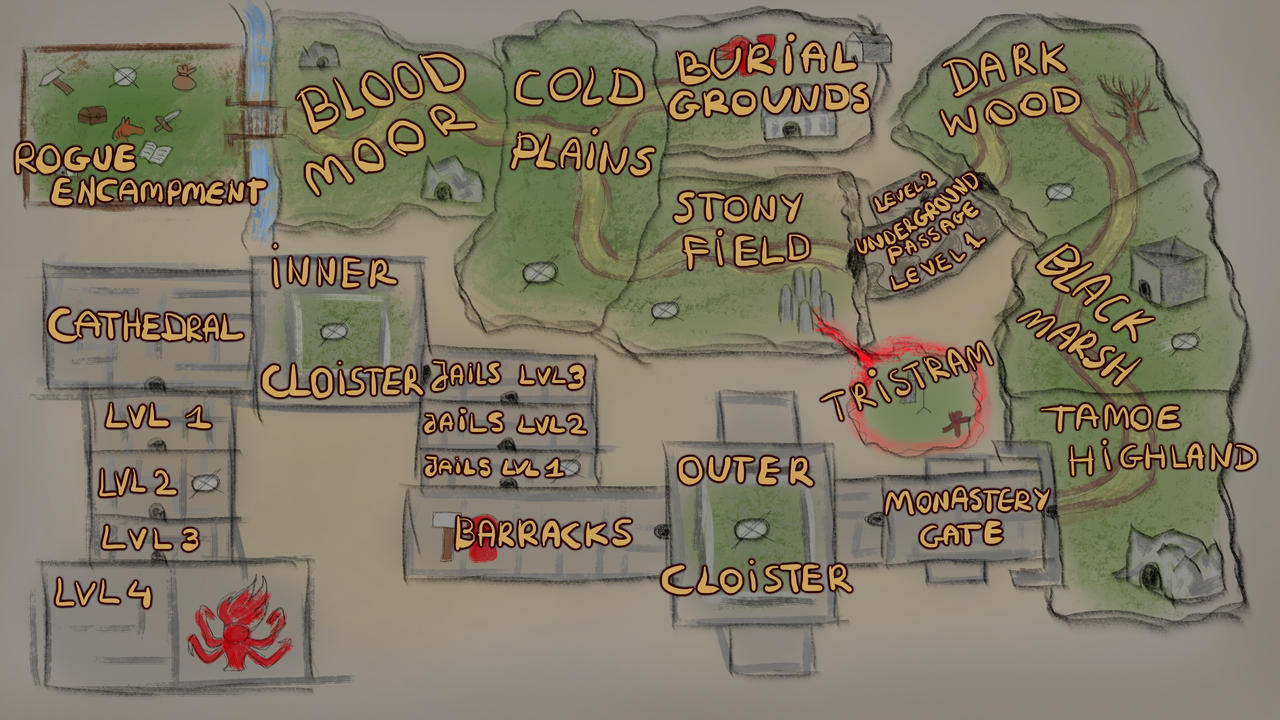 ROGUE
ENCAMPMENT
BLOOD
MOOR
COLD
PLAINS
BURIAL
GROUNDS
DARK
WOOD
STONY
FIELD
LEVEL 2
UNDERGROUND
PASSAGE
LEVEL 1
BLACK
MARSH
TRISTRAM
TAMOE
HIGHLAND
MONASTERY
GATE
OUTER
CLOISTER
BARRACKS
JAILS LVL 3
JAILS LVL 2
JAILS LVL 1
INNER
CLOISTER
CATHEDRAL
LVL 1
LVL 2
LVL 3
LVL 4